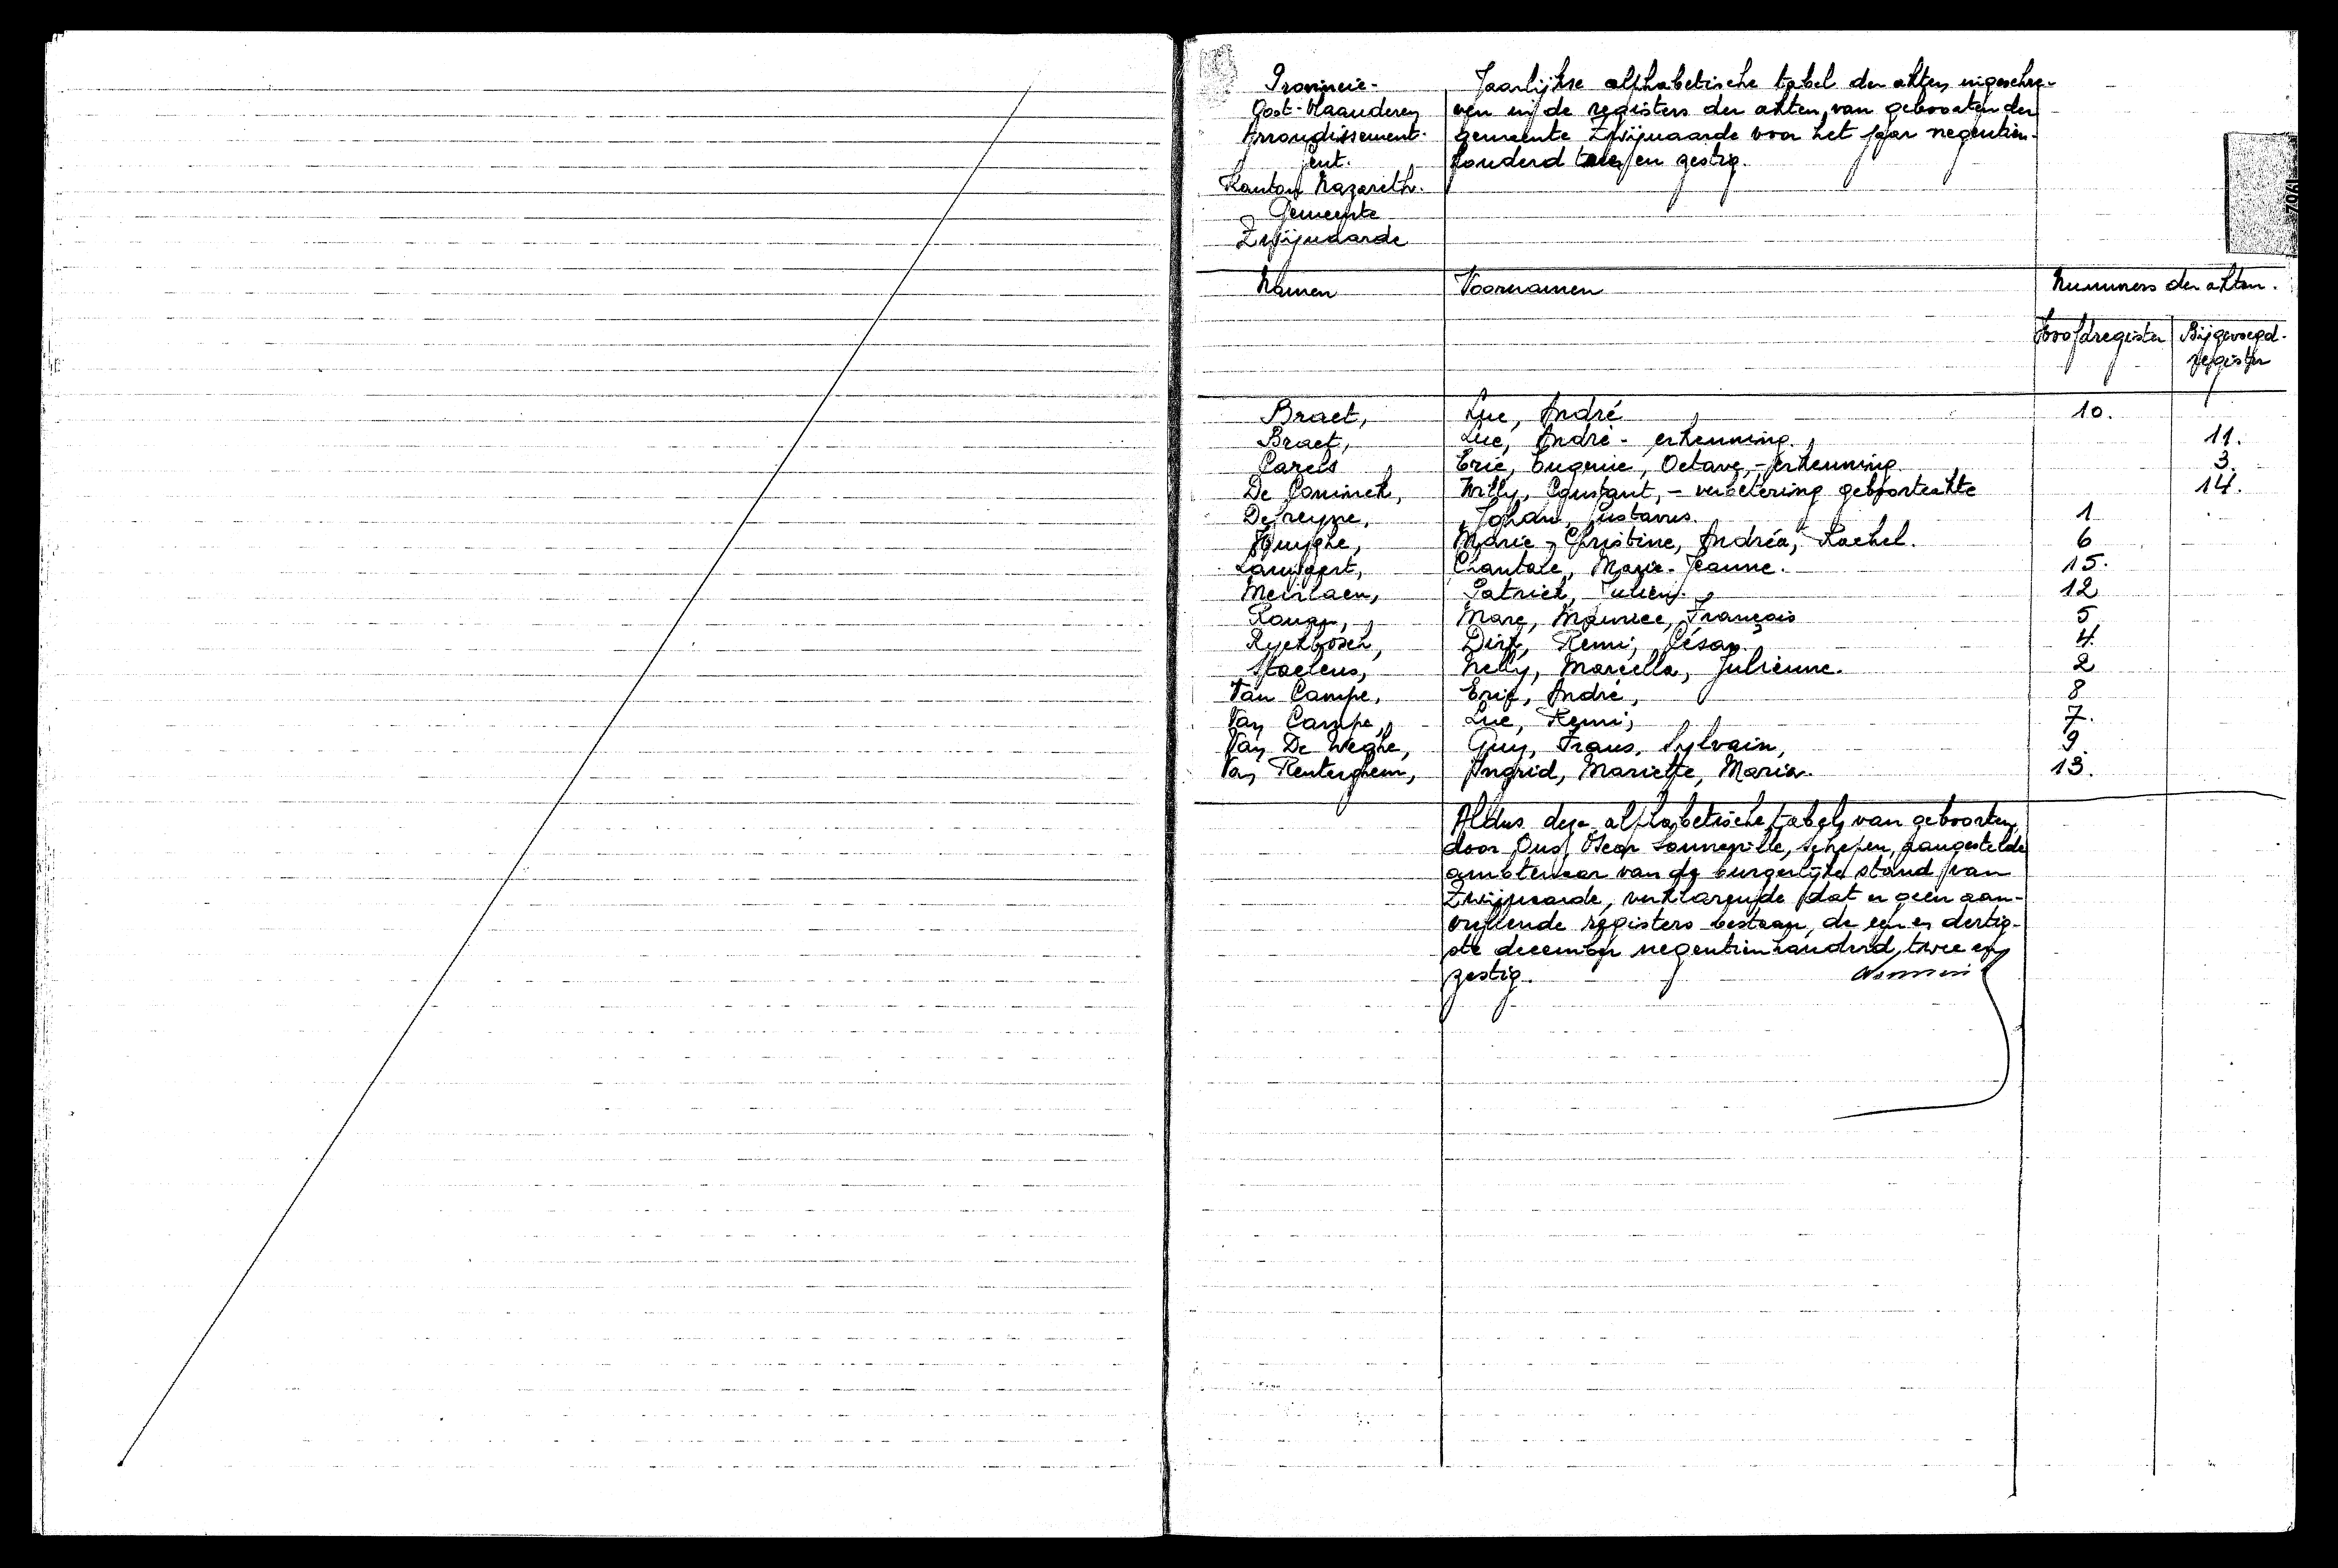 Provincie-
Oost-Vlaanderen
Arrondissement-
Gent.
Kanton Nazareth.
Gemeente
Zwijnaarde
Jaarlijkse alphabetische tabel der akten ingeschre-
ven in de registers der akten van geboorten der
gemeente Zwijnaarde voor het jaar negentien-
honderd twee en zestig.
Namen Voornamen Nummers der akten.
Hoofdregister Bijgevoegd-
register
Braet, Luc, André 10.
Braet, Luc, André - erkenning. 11.
Carels, Eric, Eugenie, Octave, - erkenning 3.
De Coninck, Willy, Constant, - verbetering geboorteakte 14.
Dereyne, Johan, Gustavus. 1
Huyghe, Marie-Christine, Andréa, Rachel. 6
Lampaert, Chantale, Marie-Jeanne. 15.
Meirlaen, Patrick, Julien. 12
Roman, Marc, Maurice, François 5
Ryckbosch, Dirk, Remi, César 4.
Staelens, Nelly, Marcella, Julienne. 2
Van Campe, Eric, André, 8
Van Campe, Luc, Remi, 7.
Van De Weghe, Guy, Frans, Sylvain, 9.
Van Renterghem, Ingrid, Mariette, Maria. 13.
Aldus deze alphabetische tabel van geboorten,
door Ons, Oscar Sonneville, schepen, aangestelde
ambtenaar van de burgerlijke stand van
Zwijnaarde, verklarende dat er geen aan-
vullende registers bestaan, de een en dertig-
ste december negentienhonderd twee en
zestig.